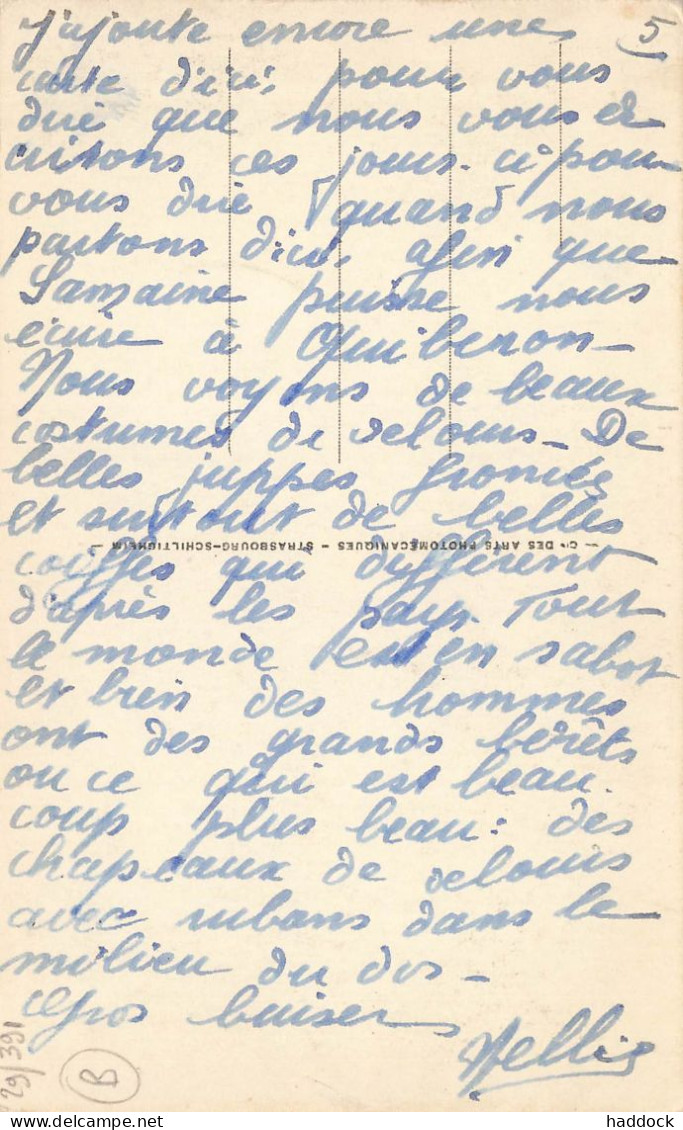 J'ajoute encore une 5
carte d'ici, pour vous
dire que nous vous é-
critons ces jours-ci pour
vous dire quand nous
partons d'ici, afin que
Samaine puisse nous
écrire à Quiberon -
Nous voyons de beaux
costumes de velours - De
belles juppes froncées
et surtout de belles
— Cie DES ARTS PHOTOMÉCANIQUES - STRASBOURG-SCHILTIGHEIM —
coiffes qui diffèrent
d'après les pays. Tout
le monde est en sabot
et bien des hommes
ont des grands bérêts
ou ce qui est beau-
coup plus beau : des
chapeaux de velours
avec rubans dans le
milieu du dos -
Gros baisers
Nellie
29/391
B
haddock